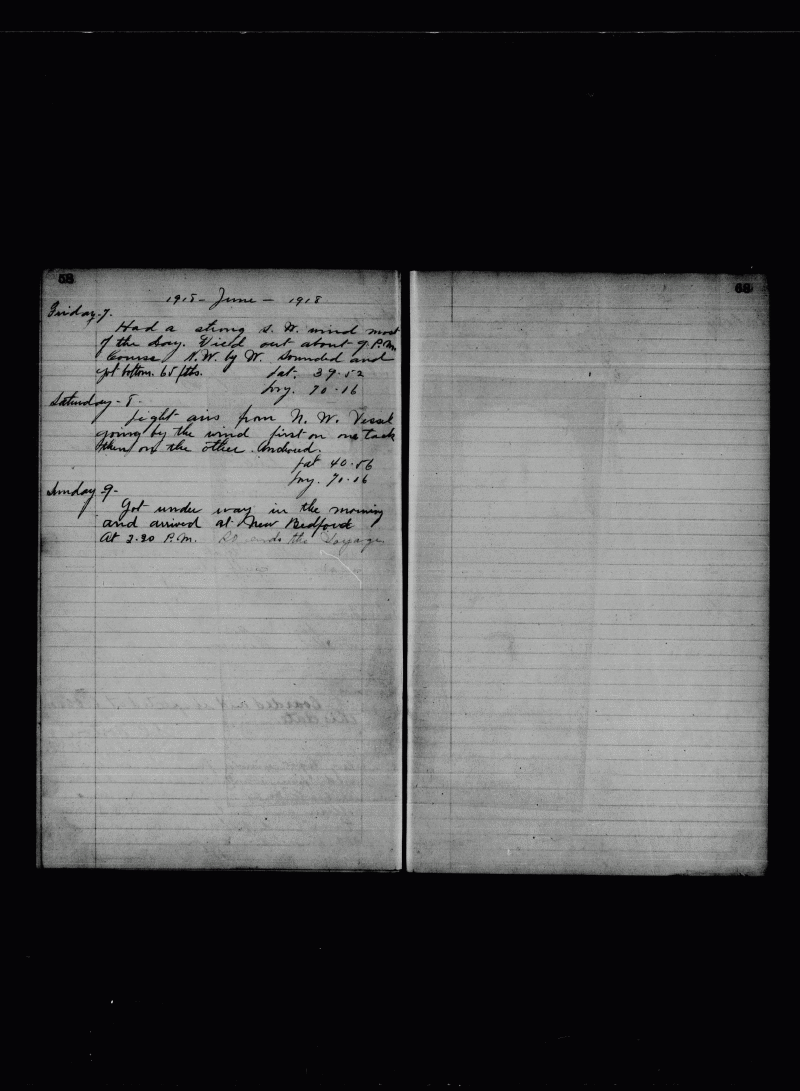 58
1918 - June - 1918
Friday. 7.
Had a strong S. W. wind most
of the day. Died out about 9. P.M.
Course N.W. by W. Sounded and
got bottom. 65 fths. Lat. 39-52
Lng. 70-16
Saturday - 8 -
Light airs from N. W. Vessel
going by the wind first on one tack
then on the other. Anchored.
Lat 40-56
Lng. 71-16
Sunday 9 -
Got under way in the morning
and arrived at New Bedford
At 2.30 P.M. So ends the Voyage.